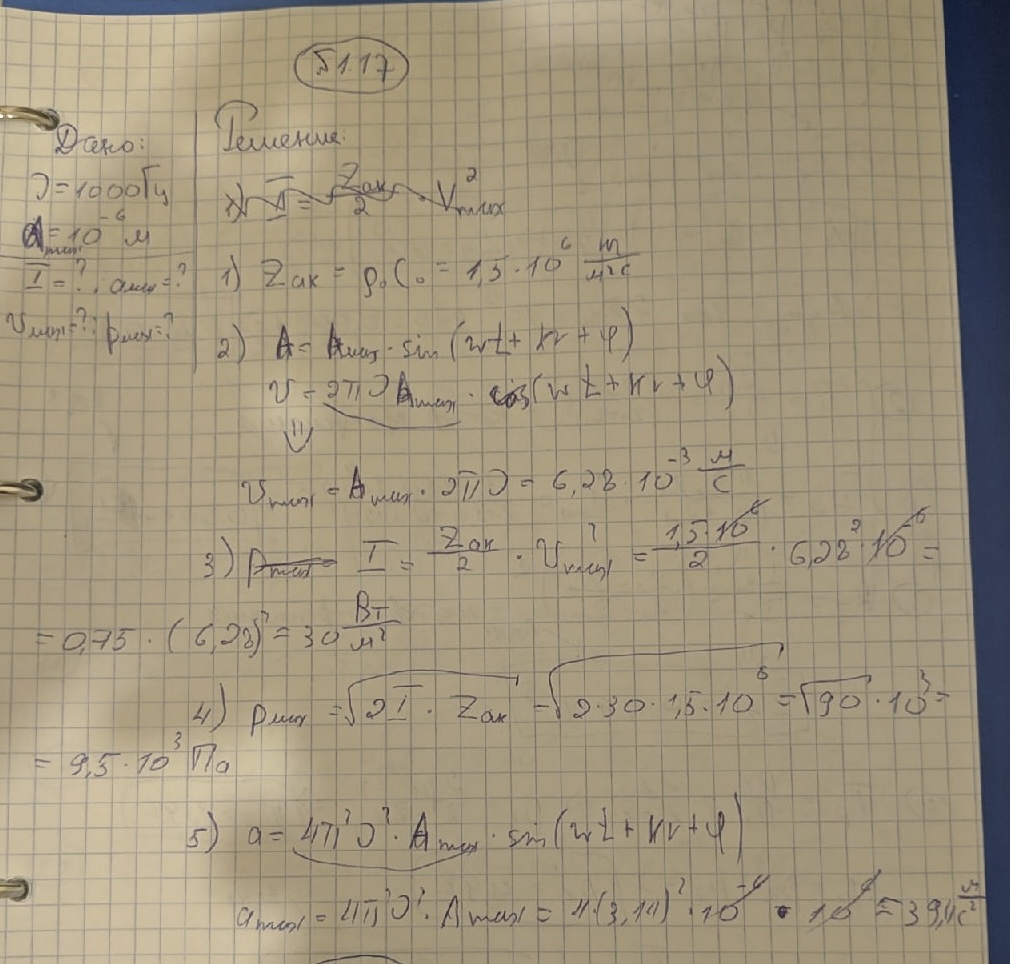 5.1.17
Дано:
ν=1000Гц
Amax=10⁻⁶ м
I=? amax=?
Vmax=? pmax=?
Решение:
1) I = Zак/2 · V²max
1) Zак = ρ₀C₀ = 1,5·10⁶ кг/м²с
2) A = Amax·sin(ωt+kr+φ)
v = 2πν Amax · cos(ωt+kr+φ)
⇓
Vmax = Amax · 2πν = 6,28·10⁻³ м/с
3) pmax = I = Zак/2 · V²max = 1,5·10⁶/2 · 6,28²·10⁻⁶ =
= 0,75·(6,28)² = 30 Вт/м²
4) pmax = √(2I·Zак) = √(2·30·1,5·10⁶) = √90·10³ =
= 9,5·10³ Па
5) a = 4π²ν²·Amax·sin(ωt+kr+φ)
amax = 4π²ν²·Amax = 4·(3,14)²·10⁻⁶ · 10⁶ = 39,4 м/с²